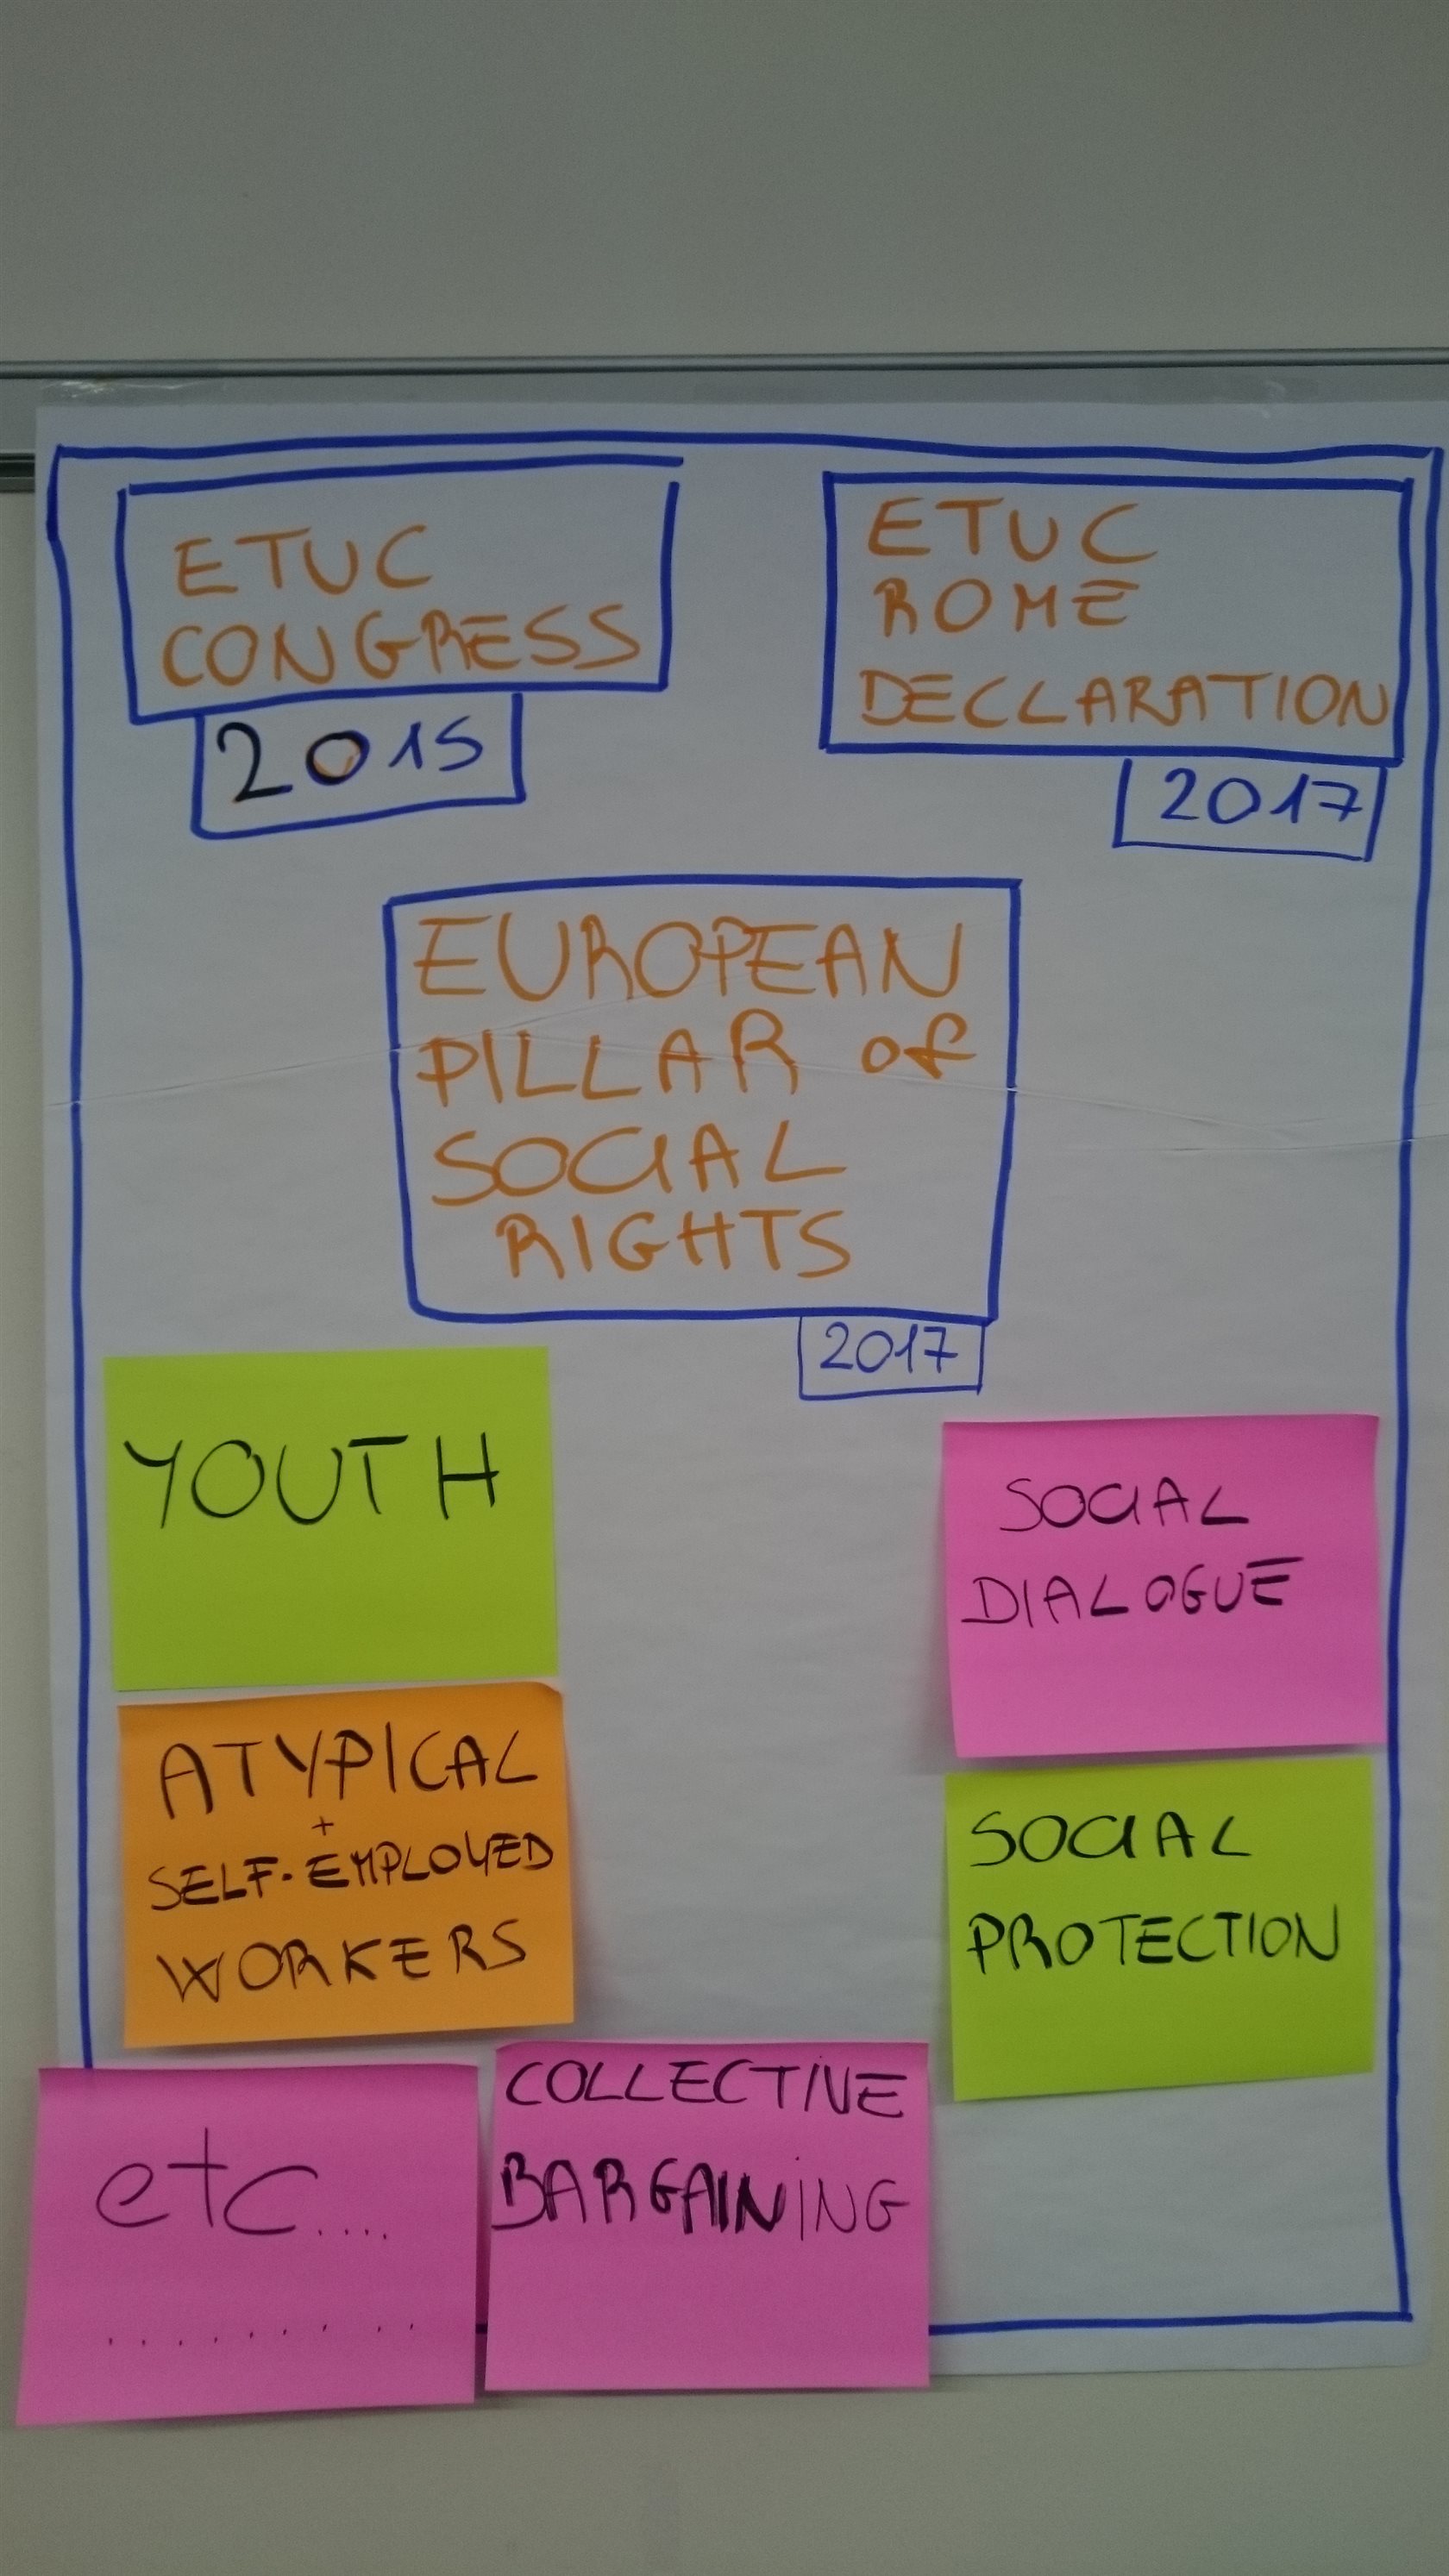 ETUC
CONGRESS
2015
ETUC
ROME
DECLARATION
2017
EUROPEAN
PILLAR of
SOCIAL
RIGHTS
2017
YOUTH
ATYPICAL
+
SELF-EMPLOYED
WORKERS
SOCIAL
DIALOGUE
SOCIAL
PROTECTION
etc....
.........
COLLECTIVE
BARGAINING